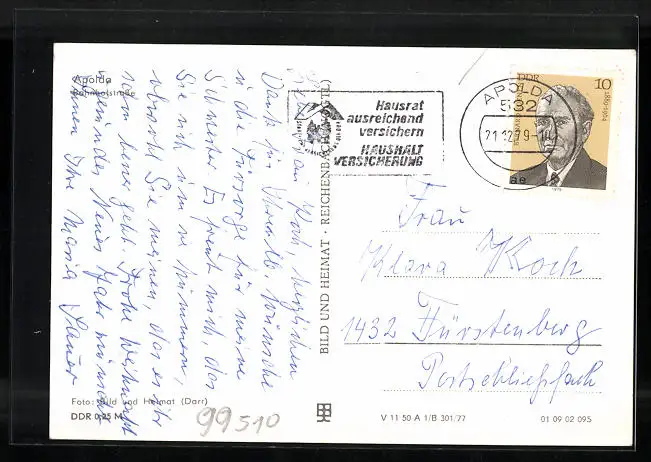 Apolda
Bahnhofstraße
Liebe Frau Koch, herzlichen
Dank für Ihre lb. Wünsche
u. die Fürsorge für meine
Schwester. Es freut mich, das
Sie sich um sie kümmern,
obwohl Sie meinen, das es ihr
schon besser geht. Frohe Weihnacht
Gesundes Neues Jahr wünscht
Ihnen Ihre Maria
BILD UND HEIMAT · REICHENBACH (VOGTL)
Hausrat
ausreichend
versichern
HAUSHALT
VERSICHERUNG
APOLDA
532
21.12.79
ae
DDR
10
1975
Frau
Klara Koch
1432 Fürstenberg
Postschließfach
Foto: Bild und Heimat (Darr)
DDR 0,25 M
99510
V 11 50 A 1/B 301/77
01 09 02 095